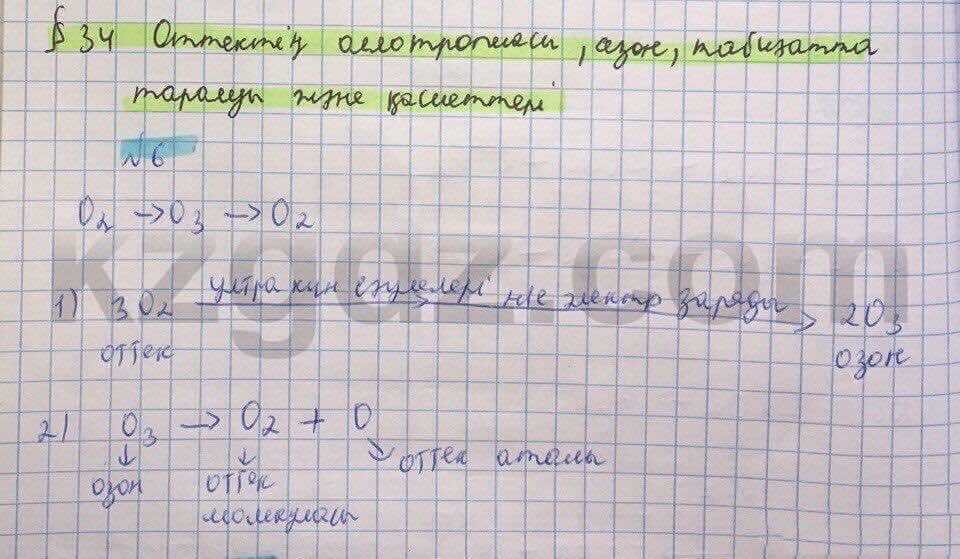 § 34 Оттектің аллотропиясы, озон, табиғатта
таралуы және қасиеттері
№6
O₂ → O₃ → O₂
1) 3O₂ ультра күн сәулелері н/е электр заряды → 2O₃
оттек озон
2) O₃ → O₂ + O
↓ ↓ ↘ оттек атомы
озон оттек
молекуласы
kzgdz.com